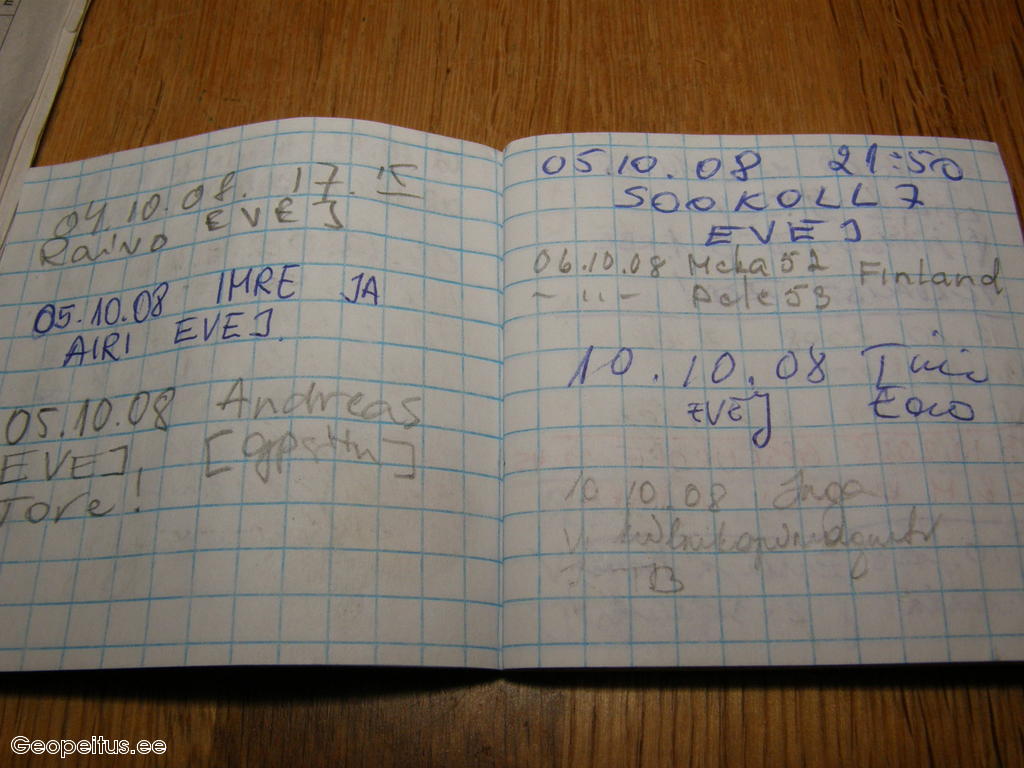 04.10.08. 17.15
Raivo EVEJ
05.10.08 IMRE JA
AIRI EVEJ.
05.10.08 Andreas
EVEJ!
Tore!
05.10.08 21:50
SOOKOLL 7
EVEJ
06.10.08 52 Finland
- " - 53
10.10.08
EVEJ
10.10.08 Inga
Geopeitus.ee